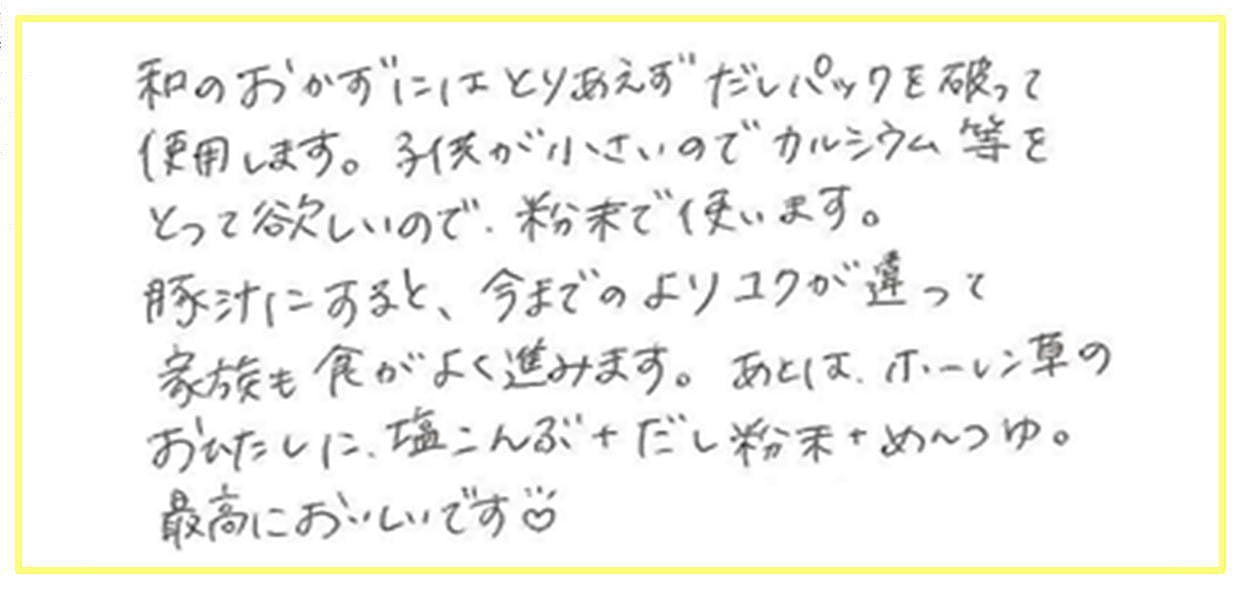 和のおかずにはとりあえずだしパックを破って
使用します。子供が小さいのでカルシウム等を
とって欲しいので、粉末で使います。
豚汁にすると、今までのよりコクが違って
家族も食がよく進みます。あとは、ホーレン草の
おひたしに、塩こんぶ+だし粉末+めんつゆ。
最高においしいです♡